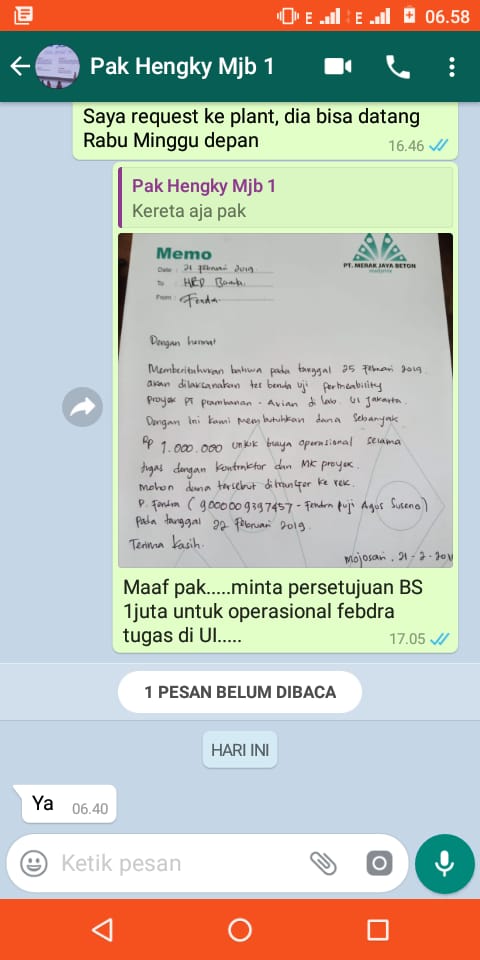 E E 06.58
Pak Hengky Mjb 1
Saya request ke plant, dia bisa datang
Rabu Minggu depan
16.46
Pak Hengky Mjb 1
Kereta aja pak
Memo
Date : 21 Februari 2019
PT. MERAK JAYA BETON
To : HRD
From : Fendra
Dengan hormat
Memberitahukan bahwa pada tanggal 25 Februari 2019
akan dilaksanakan tes benda uji permeability
Proyek PT prambanan - Avian di lab. UI Jakarta.
Dengan ini kami membutuhkan dana sebanyak
Rp 1.000.000 untuk biaya operasional selama
tugas dengan kontraktor dan MK proyek.
mohon dana tersebut ditransfer ke rek.
P. Fendra ( 9000009397457 - Fendra Puji Agus Suseno)
Pada tanggal 22 Februari 2019.
Terima kasih.
Mojosari, 21 - 2 - 201
Maaf pak.....minta persetujuan BS
1juta untuk operasional febdra
tugas di UI.....
17.05
1 PESAN BELUM DIBACA
HARI INI
Ya 06.40
Ketik pesan